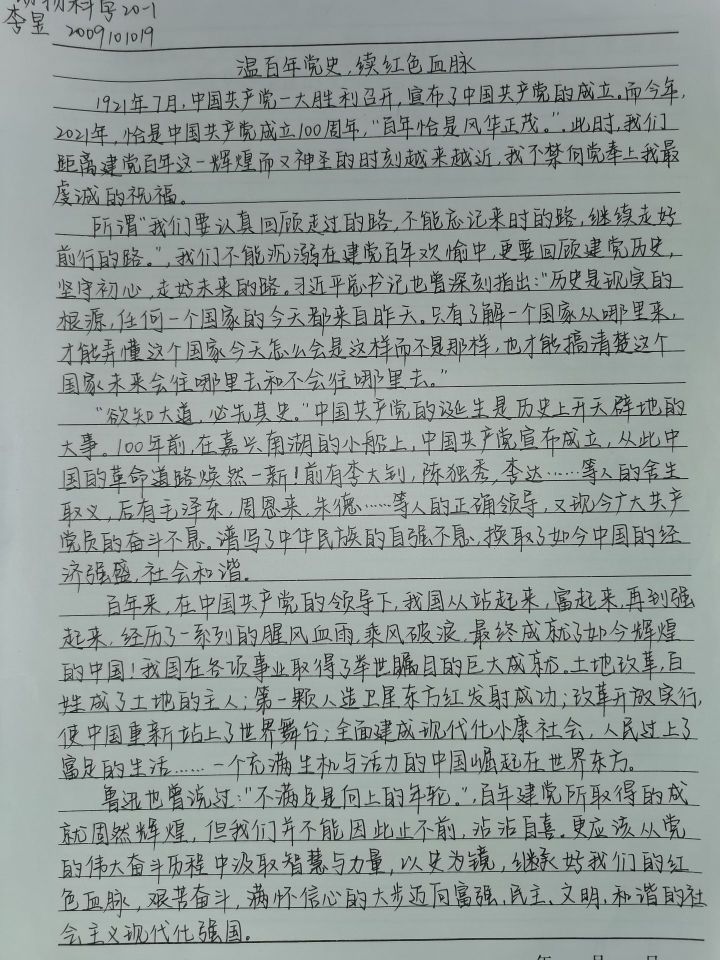 动物科学20-1
李昱 2009101019
温百年党史,续红色血脉
1921年7月,中国共产党一大胜利召开,宣布了中国共产党的成立。而今年,
2021年,恰是中国共产党成立100周年,“百年恰是风华正茂。”,此时,我们
距离建党百年这一辉煌而又神圣的时刻越来越近,我不禁向党奉上我最
虔诚的祝福。
所谓“我们要认真回顾走过的路,不能忘记来时的路,继续走好
前行的路。”,我们不能沉溺在建党百年欢愉中,更要回顾建党历史,
坚守初心,走好未来的路。习近平总书记也曾深刻指出:“历史是现实的
根源,任何一个国家的今天都来自昨天。只有了解一个国家从哪里来,
才能弄懂这个国家今天怎么会是这样而不是那样,也才能搞清楚这个
国家未来会往哪里去和不会往哪里去。”
“欲知大道,必先其史。”中国共产党的诞生是历史上开天辟地的
大事。100年前,在嘉兴南湖的小船上,中国共产党宣布成立,从此中
国的革命道路焕然一新!前有李大钊,陈独秀,李达……等人的舍生
取义,后有毛泽东,周恩来,朱德……等人的正确领导,又现今广大共产
党员的奋斗不息。谱写了中华民族的自强不息,换取了如今中国的经
济强盛,社会和谐。
百年来,在中国共产党的领导下,我国从站起来,富起来,再到强
起来,经历了一系列的腥风血雨,乘风破浪,最终成就了如今辉煌
的中国!我国在各项事业取得了举世瞩目的巨大成就。土地改革,百
姓成了土地的主人;第一颗人造卫星东方红发射成功;改革开放实行,
使中国重新站上了世界舞台;全面建成现代化小康社会,人民过上了
富足的生活……一个充满生机与活力的中国崛起在世界东方。
鲁迅也曾说过:“不满足是向上的车轮。”,百年建党所取得的成
就固然辉煌,但我们并不能因此止不前,沾沾自喜。更应该从党
的伟大奋斗历程中汲取智慧与力量,以史为镜,继承好我们的红
色血脉,艰苦奋斗,满怀信心的大步迈向富强、民主、文明、和谐的社
会主义现代化强国。